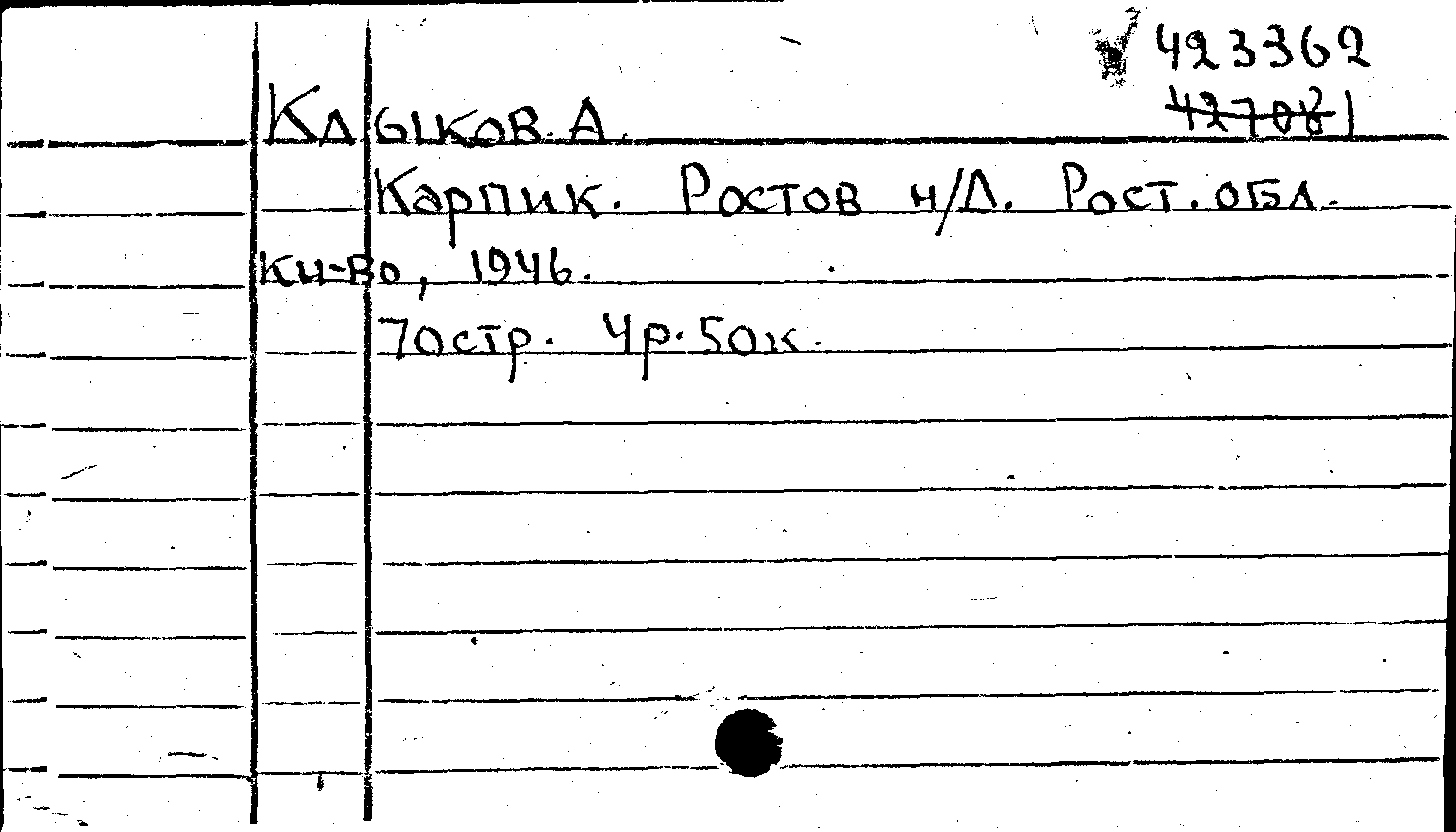 423362
427081
Клыков. А.
Карпик. Ростов н/Д. Рост. обл.
кн-во, 1946.
70стр. 4р. 50к.